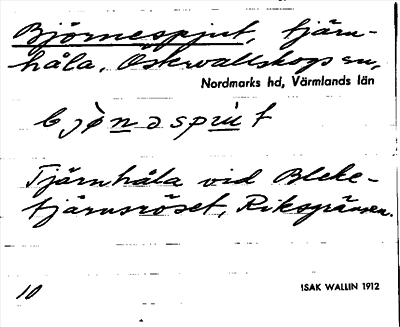 Björnespjut, tjärn-
håla, Östervallskogen,
Nordmarks hd, Värmlands län
bjø̀nəsprut
Tjärnhåla vid Bleke-
tjärnsröset, Riksgränsen.
10
ISAK WALLIN 1912